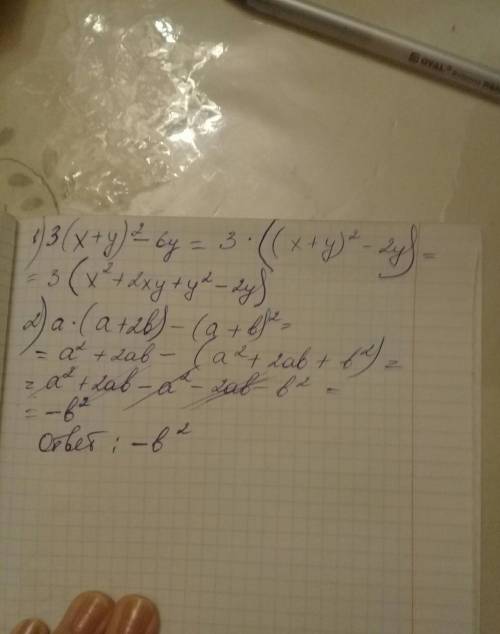 OYAL®
1) 3(x+y)² - 6y = 3 · ((x+y)² - 2y) =
= 3 (x² + 2xy + y² - 2y)
2) a · (a+2b) - (a+b)² =
= a² + 2ab - (a² + 2ab + b²) =
= a² + 2ab - a² - 2ab - b² =
= -b²
Ответ: -b²